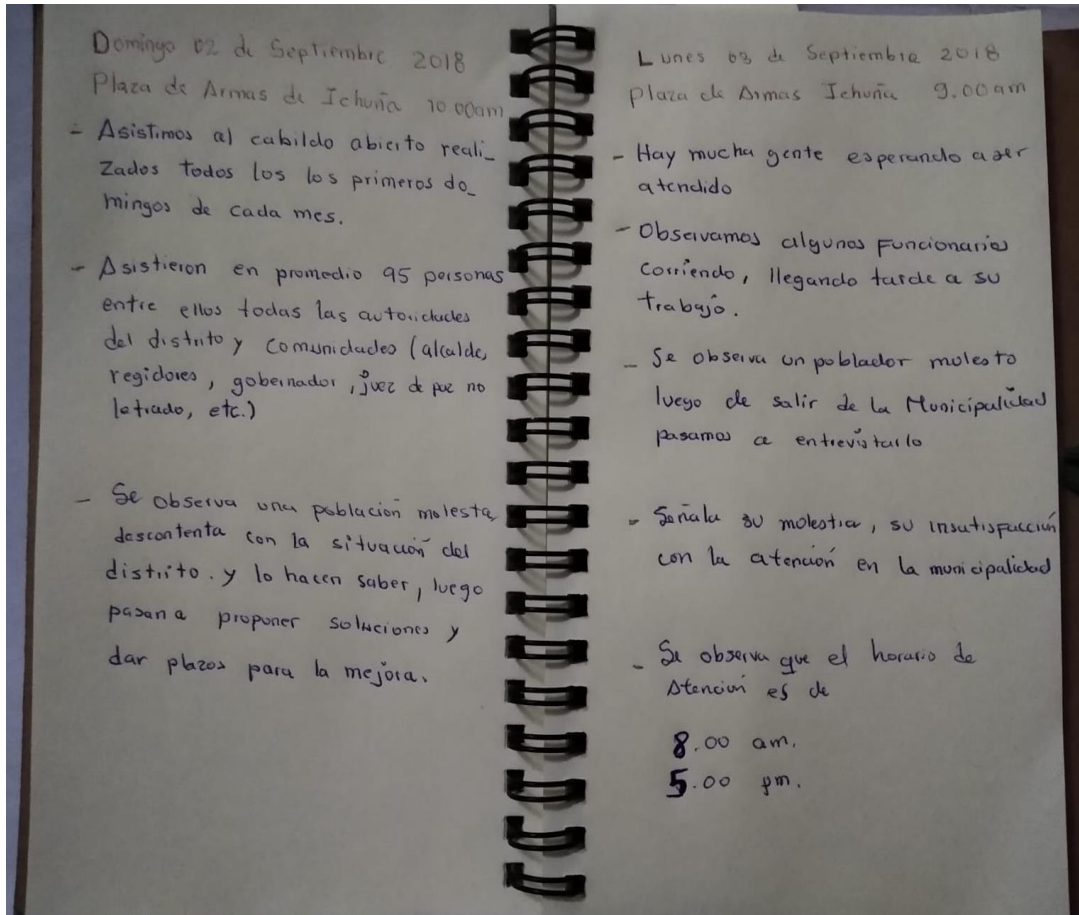 Domingo 02 de Septiembre 2018
Plaza de Armas de Ichuña 10 00am
- Asistimos al cabildo abierto reali_
zados todos los los primeros do_
mingos de cada mes.
- Asistieron en promedio 95 personas
entre ellos todas las autoridades
del distrito y comunidades (alcalde,
regidores, gobernador, juez de paz no
letrado, etc.)
- Se observa una población molesta,
descontenta con la situación del
distrito. y lo hacen saber, luego
pasan a proponer soluciones y
dar plazos para la mejora.
Lunes 03 de Septiembre 2018
Plaza de Armas Ichuña 9.00am
- Hay mucha gente esperando a ser
atendido
- Observamos algunos Funcionarios
corriendo, llegando tarde a su
trabajo.
- Se observa un poblador molesto
luego de salir de la Municipalidad
pasamos a entrevistarlo
- Señala su molestia, su insatisfacción
con la atención en la municipalidad
- Se observa que el horario de
Atención es de
8.00 am.
5.00 pm.